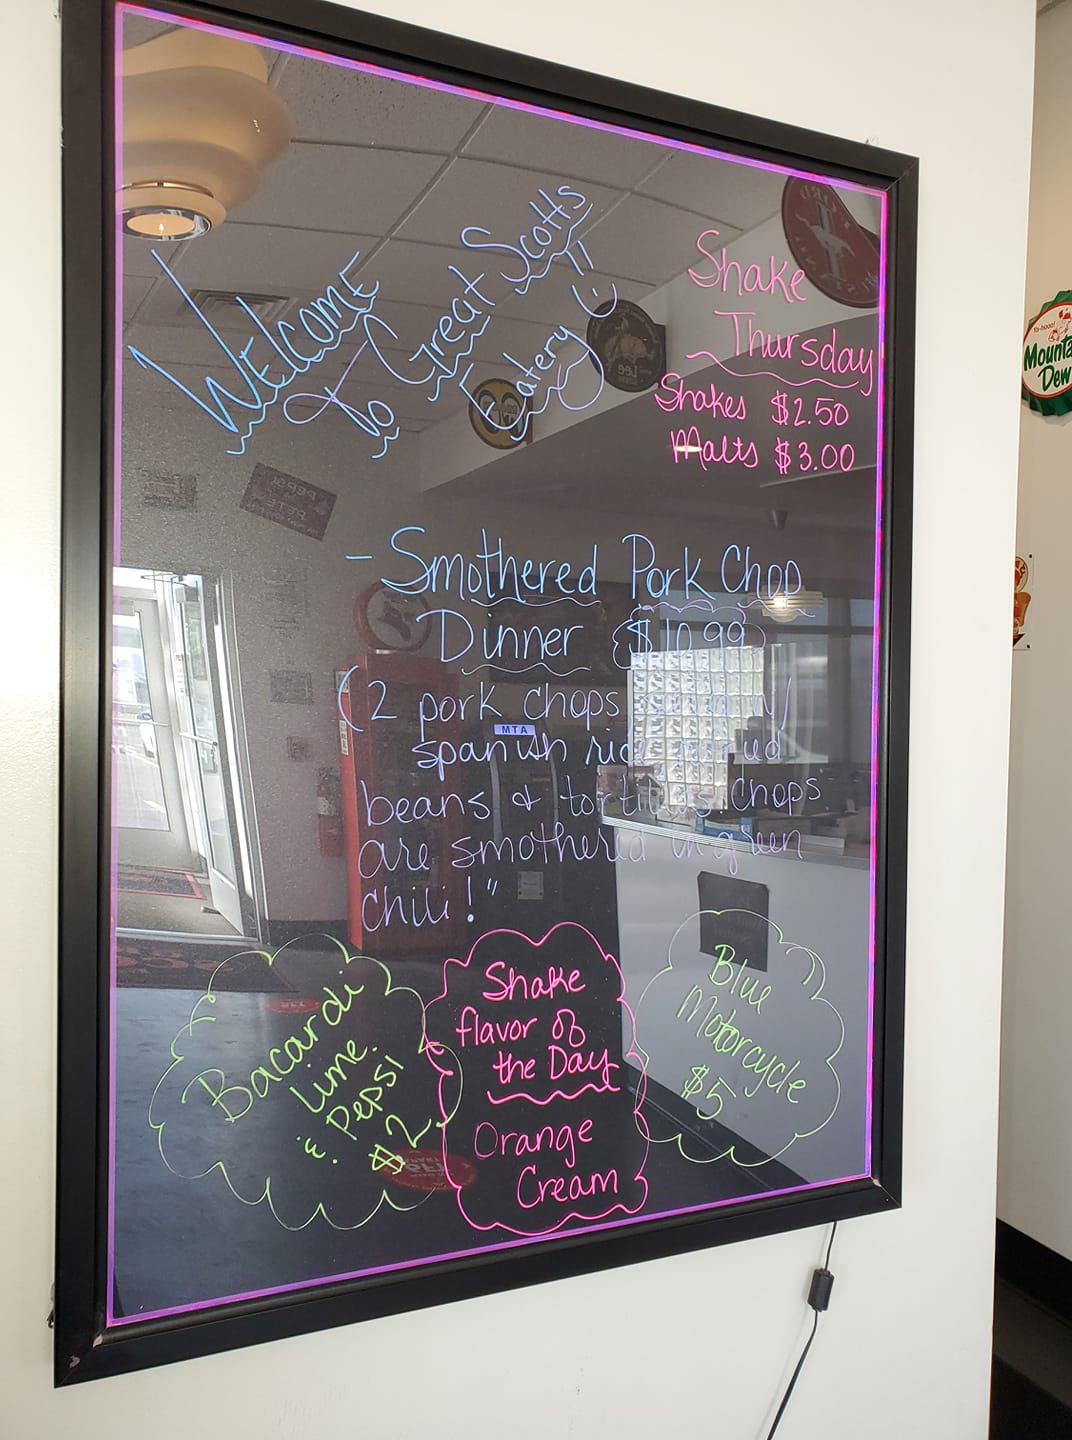 WElcomE
to Great Scotts
Eatery :)
Shake
Thursday
Shakes $2.50
Malts $3.00
- Smothered Pork Chop
Dinner $10.99
(2 pork chops w/
spanish rice
beans & tortillas. Chops
are smothered in green
chili!"
Bacardi
Lime
& Pepsi
$2
Shake
flavor of
the Day
Orange
Cream
Blue
Motorcycle
$5
MTA
Lee
PEPSI
Ya-hooo!
Mounta
Dew